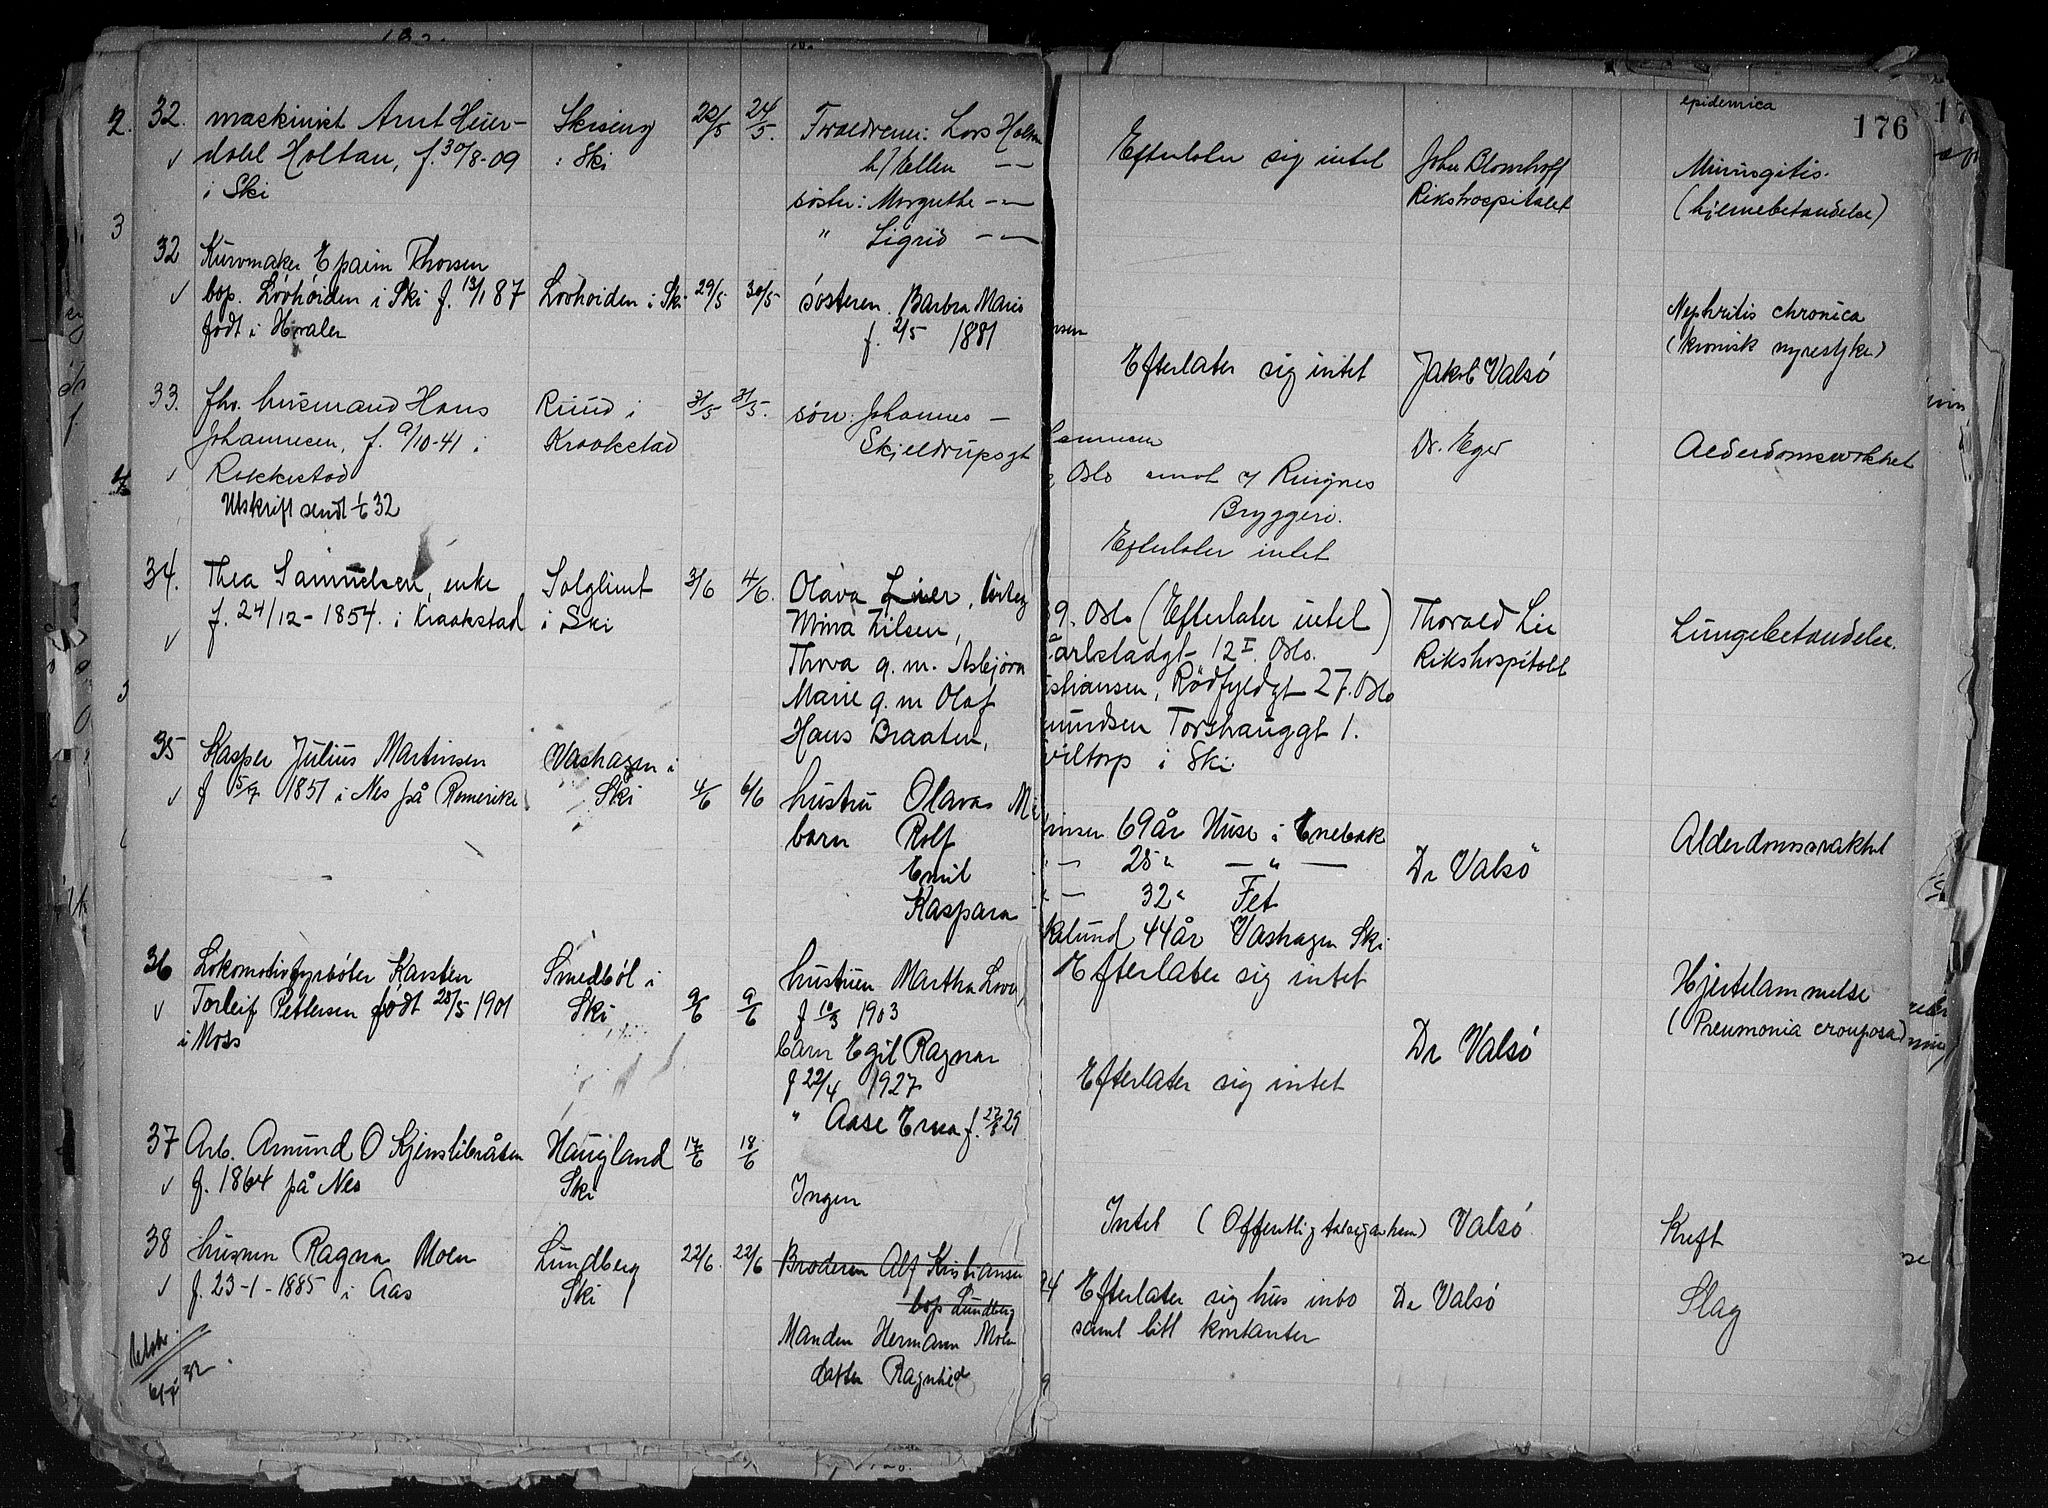 176
32. maskinist Arnt Heier-
dahl Holtan, f. 30/8-09
i Ski
Skiseng
i Ski
22/5 24/5.
Foræeldrene: Lars Holtan
h/ Ellen — —
søster: Margrethe — —
" Sigrid — —
Efterlater sig intet
John Blomhoff
Rikshospitalet
epidemica
Miningitis.
(hjernebetændelse)
32 Kurvmaker Epaim Thorsen
bop. Lövhöiden i Ski f. 13/1 87
födt i Hvaler
Lövhöiden i Ski
29/5 30/5
söstern. Barbra Marie
f. 2/5 1881
Efterlater sig intet
Jakob Valsö
Nephritis chronica
(kronisk nyresyke)
33. fhv. husmand Hans
Johannesen, f. 9/10-41 i
Rakkestad
Utskrift sendt 1/6 32
Ruud i
Kraakstad
31/5 31/5.
søn: Johannes —
Skjeldrupsgt
Oslo ansat v/ Ringnes
Bryggeri.
Efterlater intet
Dr. Eger
Alderdomssvakhet
34. Thea Samuelsen, enke
f. 24/12-1854. i Kraakstad
Solglimt
i Ski
3/6 4/6.
Olava Lier,
Mina Nilsen,
Thora g. m. Asbjörn
Marie g. m Olaf
Hans Braaten,
9. Oslo (Efterlater intet)
arlstadgt 12 I. Oslo.
stiansen, Rödfyldgt 27. Oslo
mundsen Torshauggt 1.
viltorp i Ski
Thorald Lie
Rikshospitalet
Lungebetændelse.
35 Kasper Julius Martinsen
f 15/7 1851 i Nes på Romerike
Vashagen i
Ski
4/6 6/6
hustru Olava M
barn Rolf
Emil
Kaspara
insen 69 år Huse i Enebak
— 25 " — " —
— 32 " Fet
klund 44 år Vashagen Ski
Efterlater sig intet
Dr Valsö
Alderdomssvakhet
36 Lokomotivfyrböter Karsten
Torleif Pettersen födt 28/5 1901
i Moss
Smedböl i
Ski
9/6 9/6
hustruen Martha Lovi
f 10/3 1903
barn Egil Ragnar
f 22/4 1927
" Aase Erna f. 27/8 29
Efterlater sig intet
Dr Valsö
Hjertelammelse
(Pneumonia crouposa)
37 Arb. Amund O Kjenslibråten
f. 1864 på Nes
Haugland
Ski
17/6 18/6
Ingen
Intet (Offentlig
Valsö
Kreft
38 husmor Ragna Moen
f. 23-1-1885 i Aas
Lundberg
Ski
22/6. 22/6
Broderen Alf Kristiansen
bop Lundberg
Manden Hermann Moen
datter Ragnhild
Efterlater sig hus inbo
samt litt kontanter
Dr Valsö
Slag